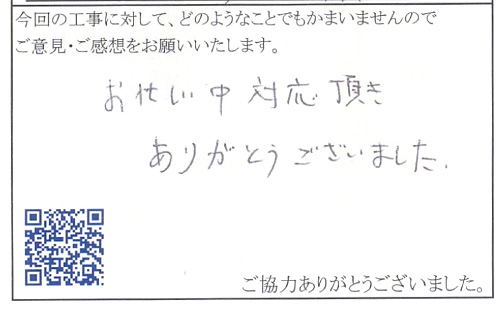 今回の工事に対して、どのようなことでもかまいませんので
ご意見・ご感想をお願いいたします。
お忙い中 対応 頂き
ありがとうございました.
ご協力ありがとうございました。